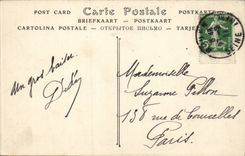 POST CARD Carte Postale POSTKARTE
BRIEFKAART POSTKAART
CARTOLINA POSTALE ОТКРЫТОЕ ПИСЬМО
Un gros baiser
Mademoiselle
Suzanne Pellon
130 rue de Courcelles
Paris.